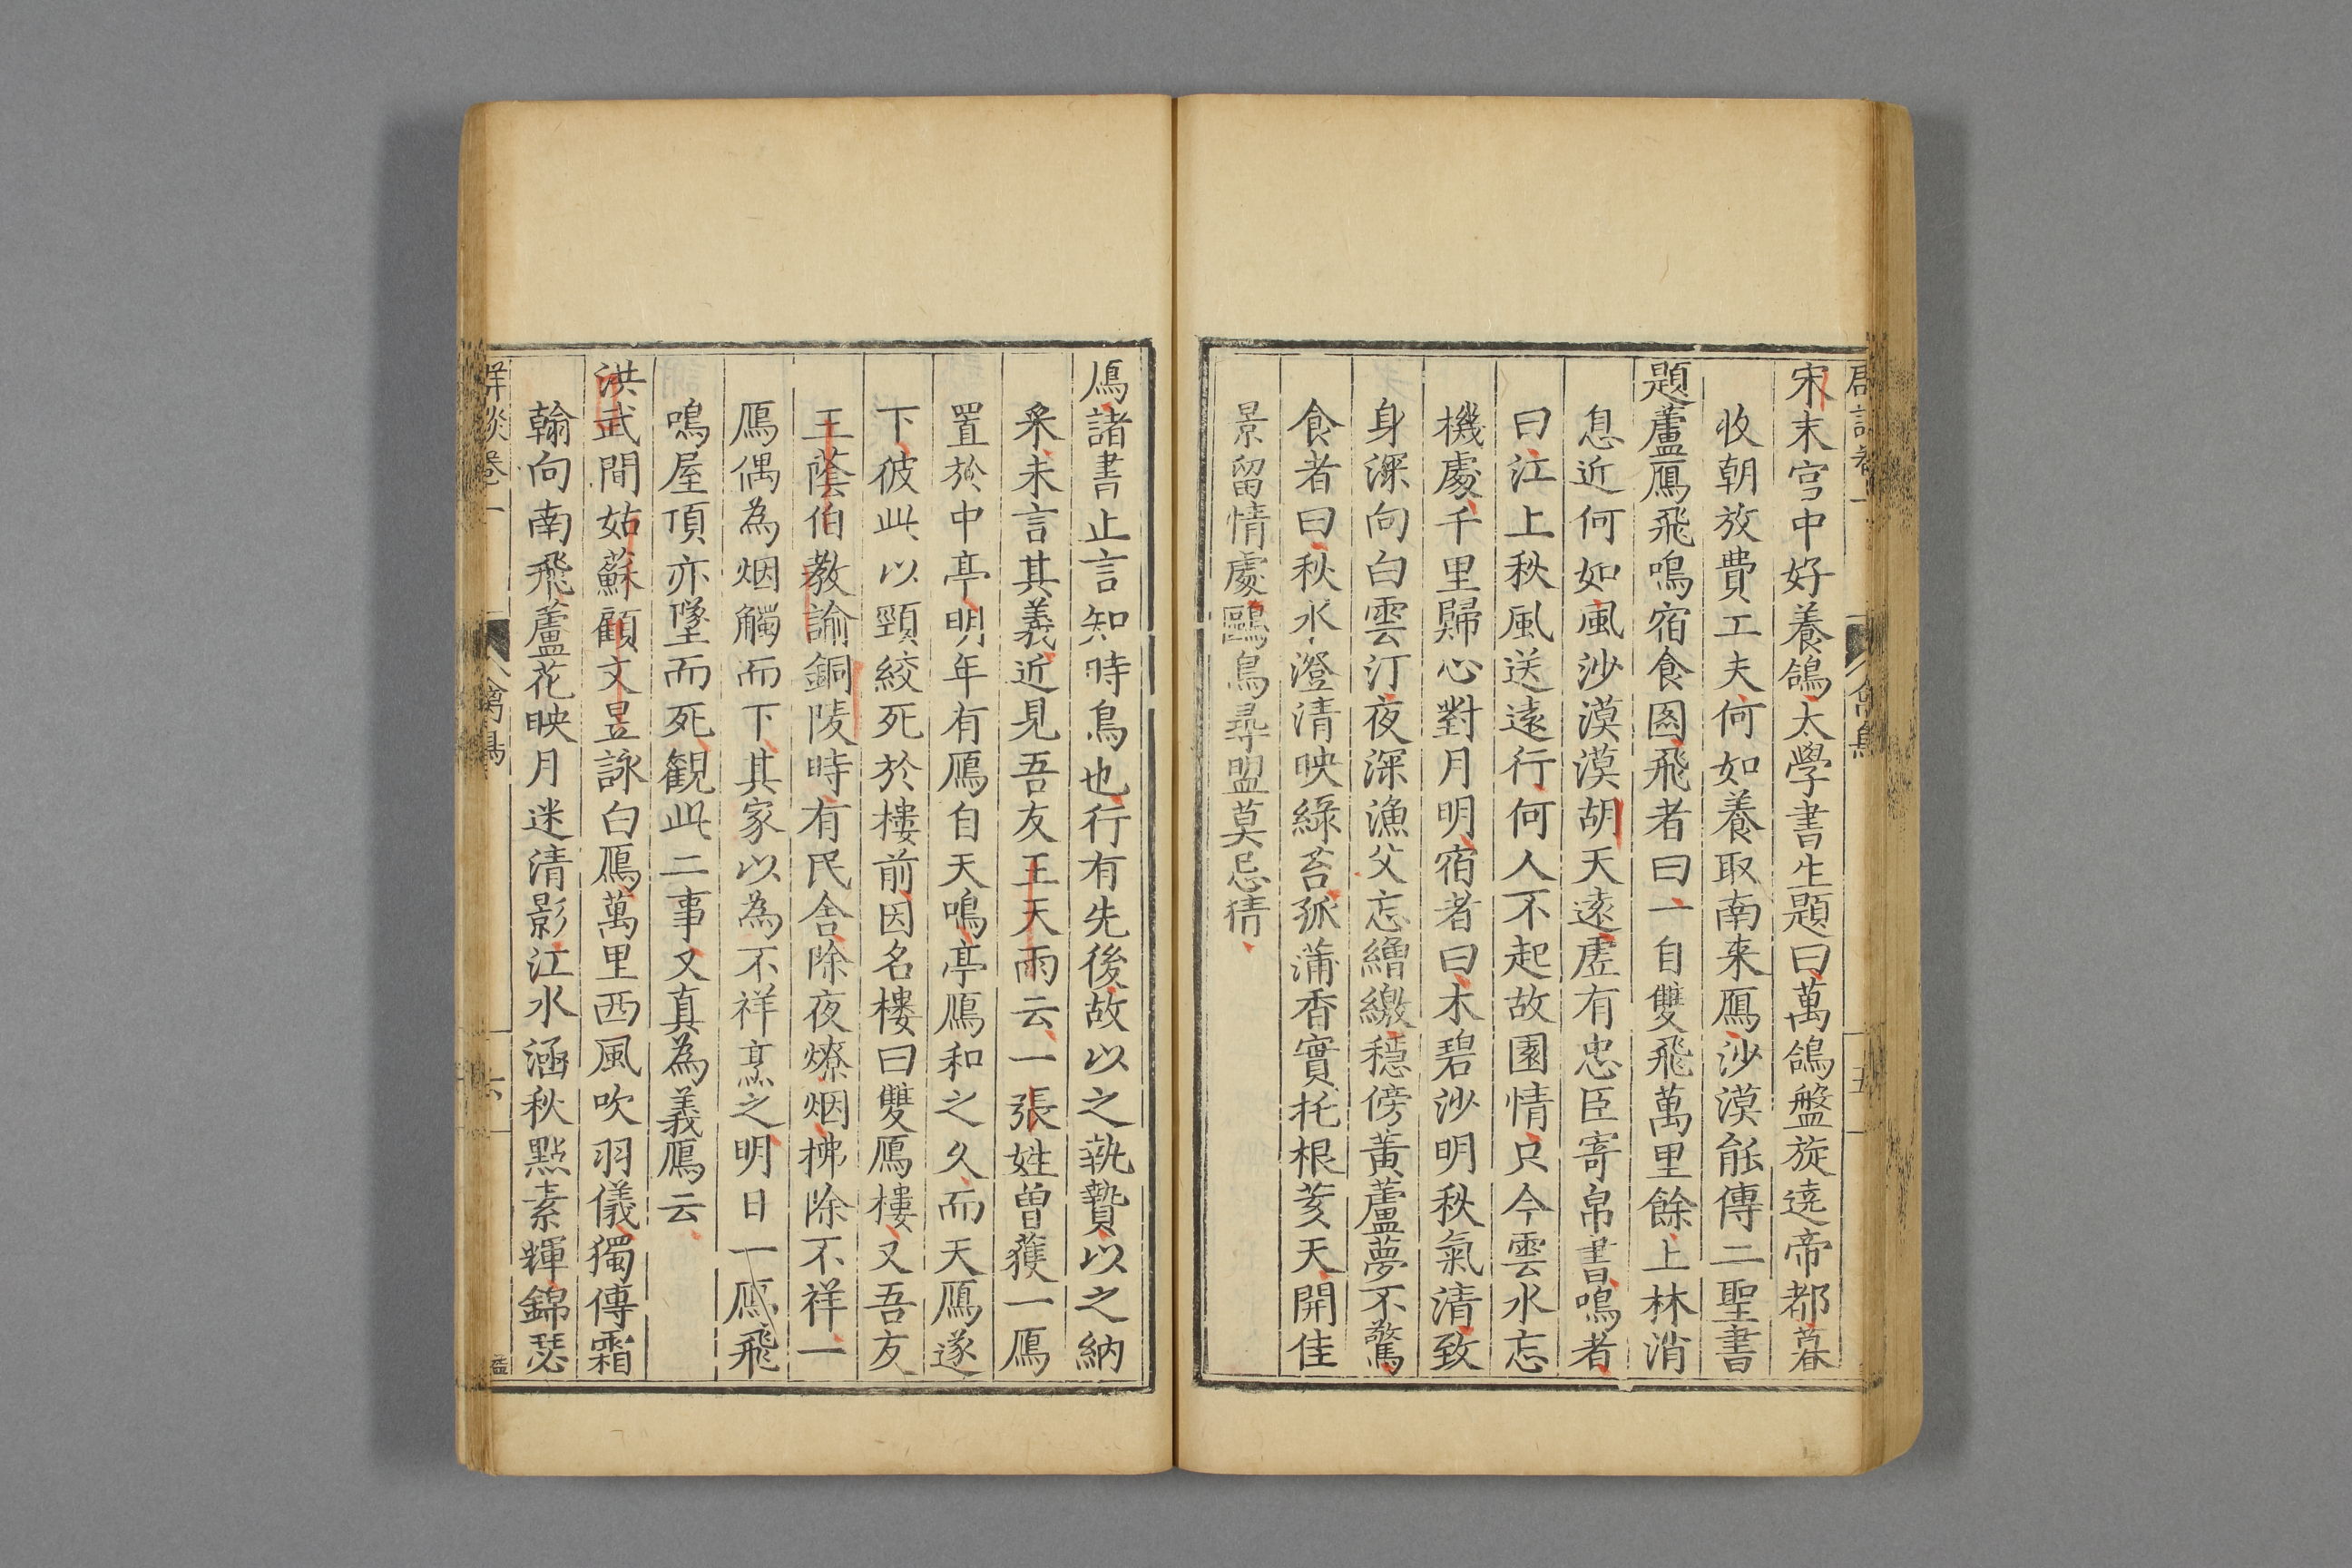 宋末宫中好養鴿太學書生題曰萬鴿盤旋遶帝都暮
收朝放費工夫何如養取南来鴈沙漠能傳二聖書
題蘆鴈飛鳴宿食圖飛者曰一自雙飛萬里餘上林消
息近何如風沙漠漠胡天遠虗有忠臣寄帛書鳴者
曰江上秋風送遠行何人不起故園情只今雲水忘
機處千里歸心對月明宿者曰木碧沙明秋氣清致
身深向白雲汀夜深漁父忘繒繳穩傍黃蘆夢不驚
食者曰秋水澄清映綠苔菰蒲香實托根荄天開佳
景留情處鷗鳥尋盟莫忌猜
鴈諸書止言知時鳥也行有先後故以之執贄以之納
采未言其義近見吾友王天雨云一張姓曾獲一鴈
置於中亭明年有鴈自天鳴亭鴈和之久而天鴈遂
下彼此以頸絞死於樓前因名樓曰雙鴈樓又吾友
王蔭伯教諭銅陵時有民舍除夜燎烟拂除不祥一
鴈偶為烟觸而下其家以為不祥烹之明日一鴈飛
鳴屋頂亦墜而死觀此二事又真為義鴈云
洪武間姑蘇顧文昱詠白鴈萬里西風吹羽儀獨傳霜
翰向南飛蘆花映月迷清影江水涵秋點素輝錦瑟
群談卷一 禽鳥 六